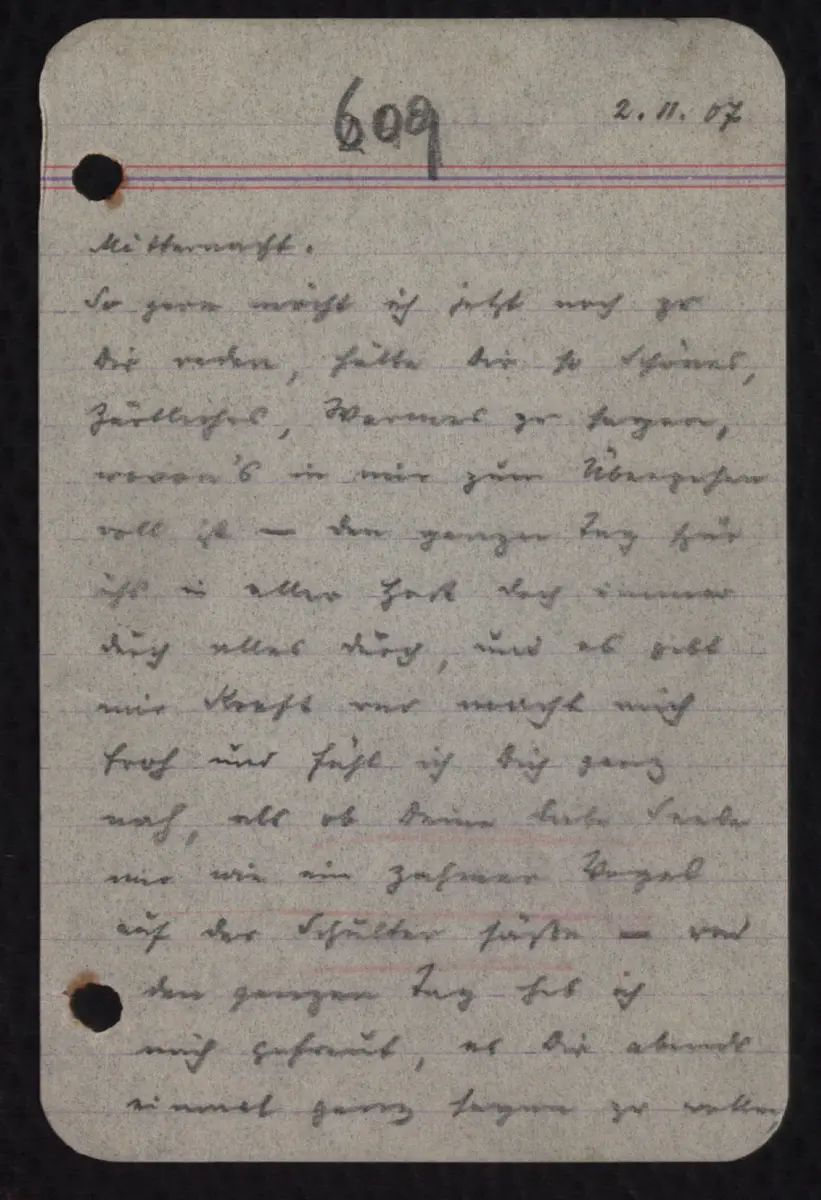 609
2. 11. 07
Mitternacht.
So gern möcht ich jetzt noch zu
Dir reden, hätte Dir so Schönes,
Zärtliches, Warmes zu sagen,
wovon's in mir zum Übergehen
voll ist — den ganzen Tag spür
ichs in aller Hast doch immer
durch alles durch, und es gibt
mir Kraft und macht mich
froh und fühl ich Dich ganz
nah, als ob Deine liebe Seele
mir wie ein zahmer Vogel
auf der Schulter säße — und
den ganzen Tag hab ich
mich gefreut, es Dir abends
einmal ganz sagen zu wollen,